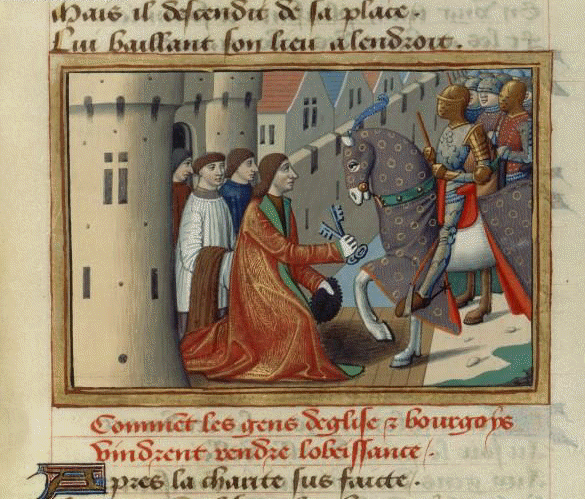 Mais il descendit de sa place.
Lui baillant son lieu a lendroit.
Comment les gens deglise z bourgoys
vindrent rendre lobeissance.
Apres la charite sus faicte.